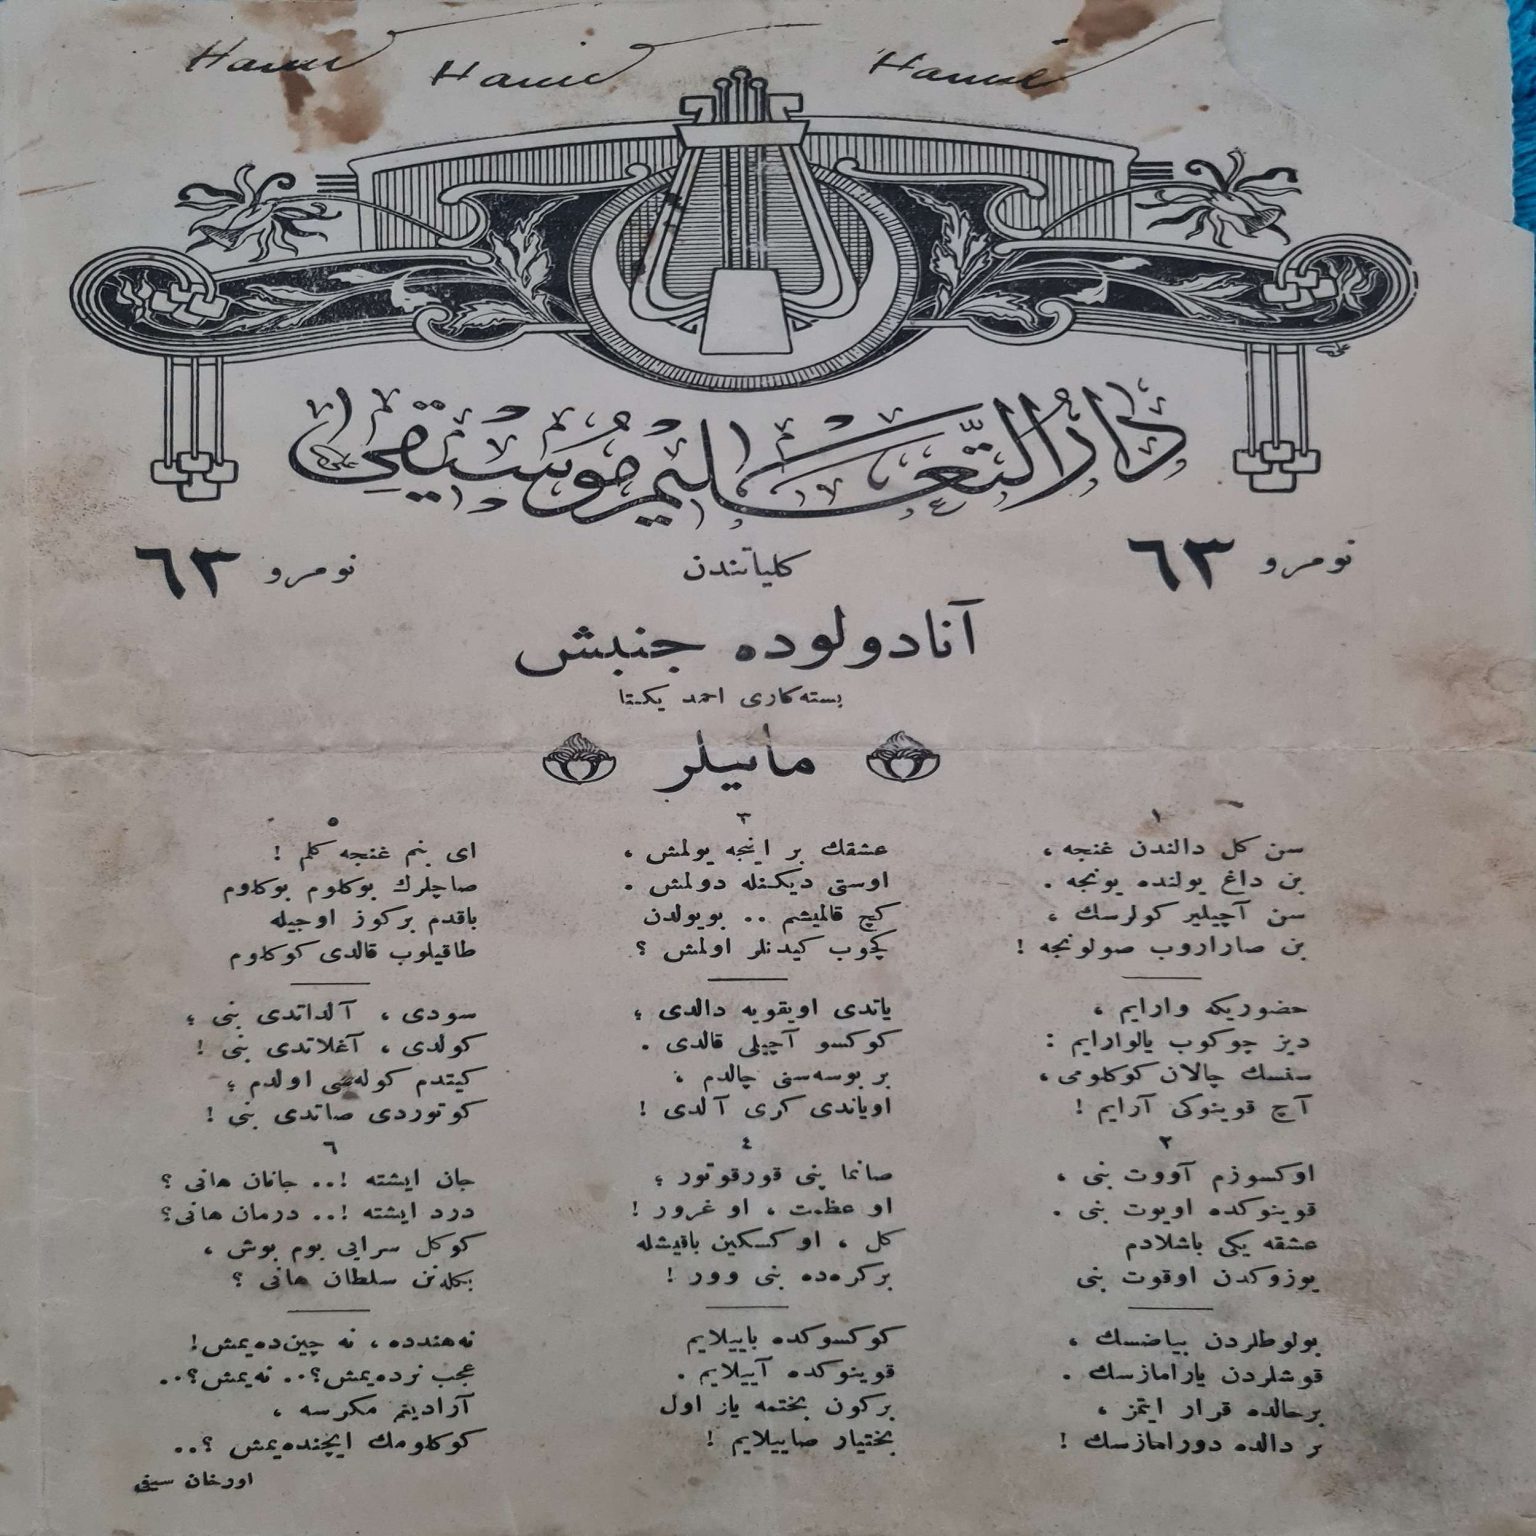 Hamid Hamid Hamid
دار التعليم موسيقى
نومرو ٦٣
كلياتندن
نومرو ٦٣
آنادولوده جنبش
بسته‌كارى احمد يكتا
مانيلر
١
سن كل دالندن غنجه ،
بن داغ يولنده يونجه .
سن آچيلير كولرسك ،
بن صاراروب صولونجه !
حضوريكه وارايم ،
ديز چوكوب يالوارايم :
سنسك چالان كوكلومى ،
آچ قوينوكى آرايم !
٢
اوكسوزم آووت بنى ،
قوينوكده اويوت بنى .
عشقه يكى باشلادم
يوزوكدن اوقوت بنى
بولوطلردن بياضسك ،
قوشلردن يارامازسك .
برحالده قرار ايتمز ،
بر دالده دورامازسك !
٣
عشقك بر اينجه يولمش ،
اوستى ديكنله دولمش .
كچ قالميشم .. بويولدن
كچوب كيدنلر اولمش ؟
ياتدى اويقويه دالدى ؛
كوكسو آچيلى قالدى .
بر بوسه‌سنى چالدم ،
اوياندى كرى آلدى !
٤
صانما بنى قورقوتور ؛
او عظمت ، او غرور !
كل ، او كسكين باقيشله
بركره‌ده بنى وور !
كوكسوكده باييلايم
قوينوكده آييلايم .
بركون بختمه ياز اول
بختيار صاييلايم !
٥
اى بنم غنجه كلم !
صاچلرك بوكلوم بوكلوم
باقدم بركوز اوجيله
طاقيلوب قالدى كوكلوم
سودى ، آلداتدى بنى ؛
كولدى ، آغلاتدى بنى !
كيتدم كوله‌سى اولدم ؛
كوتوردى صاتدى بنى !
٦
جان ايشته !.. جانان هانى ؟
درد ايشته !.. درمان هانى؟
كوكل سرايى بوم بوش ،
بكله‌نن سلطان هانى ؟
نه‌هندده ، نه چين‌ده‌يمش!
عجب نرده‌يمش؟.. نه‌يمش؟..
آراديغم مكرسه ،
كوكلومك ايچنده‌يمش ؟..
اورخان سيفى